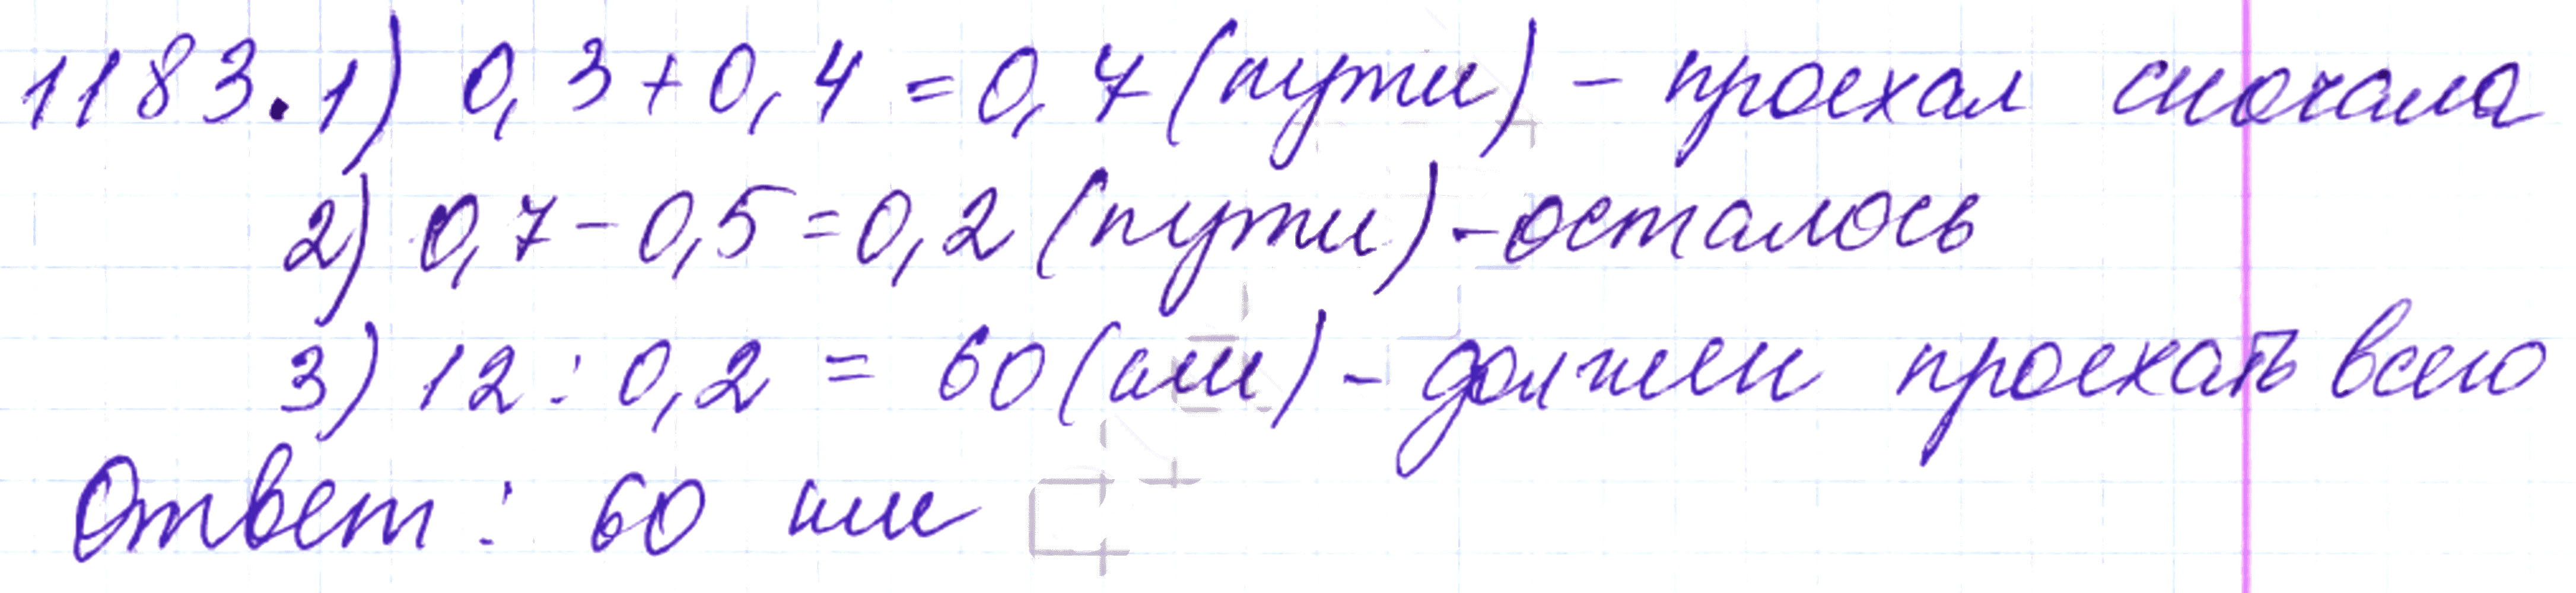 1183. 1) 0,3 + 0,4 = 0,7 (пути) - проехал сначала
2) 0,7 - 0,5 = 0,2 (пути) - осталось
3) 12 : 0,2 = 60 (км) - должен проехать всего
Ответ: 60 км